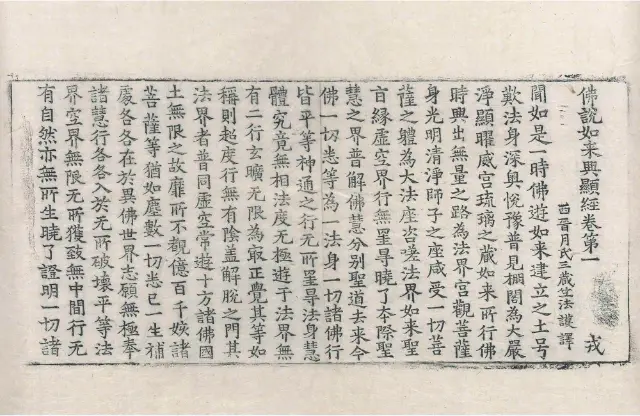 佛說如来興顯經卷第一 戎
西晉月氏三藏竺法護譯
聞如是一時佛遊如来建立之土号
歎法身深奧恱豫普見棚閣為大嚴
淨顯曜威宫琉璃之藏如来所行佛
時興出無量之路為法界宫觀菩薩
身光明清淨師子之座咸受一切菩
薩之體為大法座咨嗟法界如来聖
旨緣虚空界行無罣导曉了夲際聖
慧之界普解佛慧分别聖道去来今
佛一切悉等為一法身一切諸佛行
皆平等神通之行无所罣导法身慧
體究竟無相法度无極遊于法界無
有二行玄曠无限為最正覺其等如
稱則起度行無有陰盖解脫之門其
法界者普同虚空常遊十方諸佛國
土無限之故靡所不觀億百千姟諸
菩薩等猶如塵數一切悉已一生補
處各各在於異佛世界志願無極奉
諸慧行各各入於无所破壞平等法
界空界無限无所獲致無中間行无
有自然亦無所生曉了證明一切諸